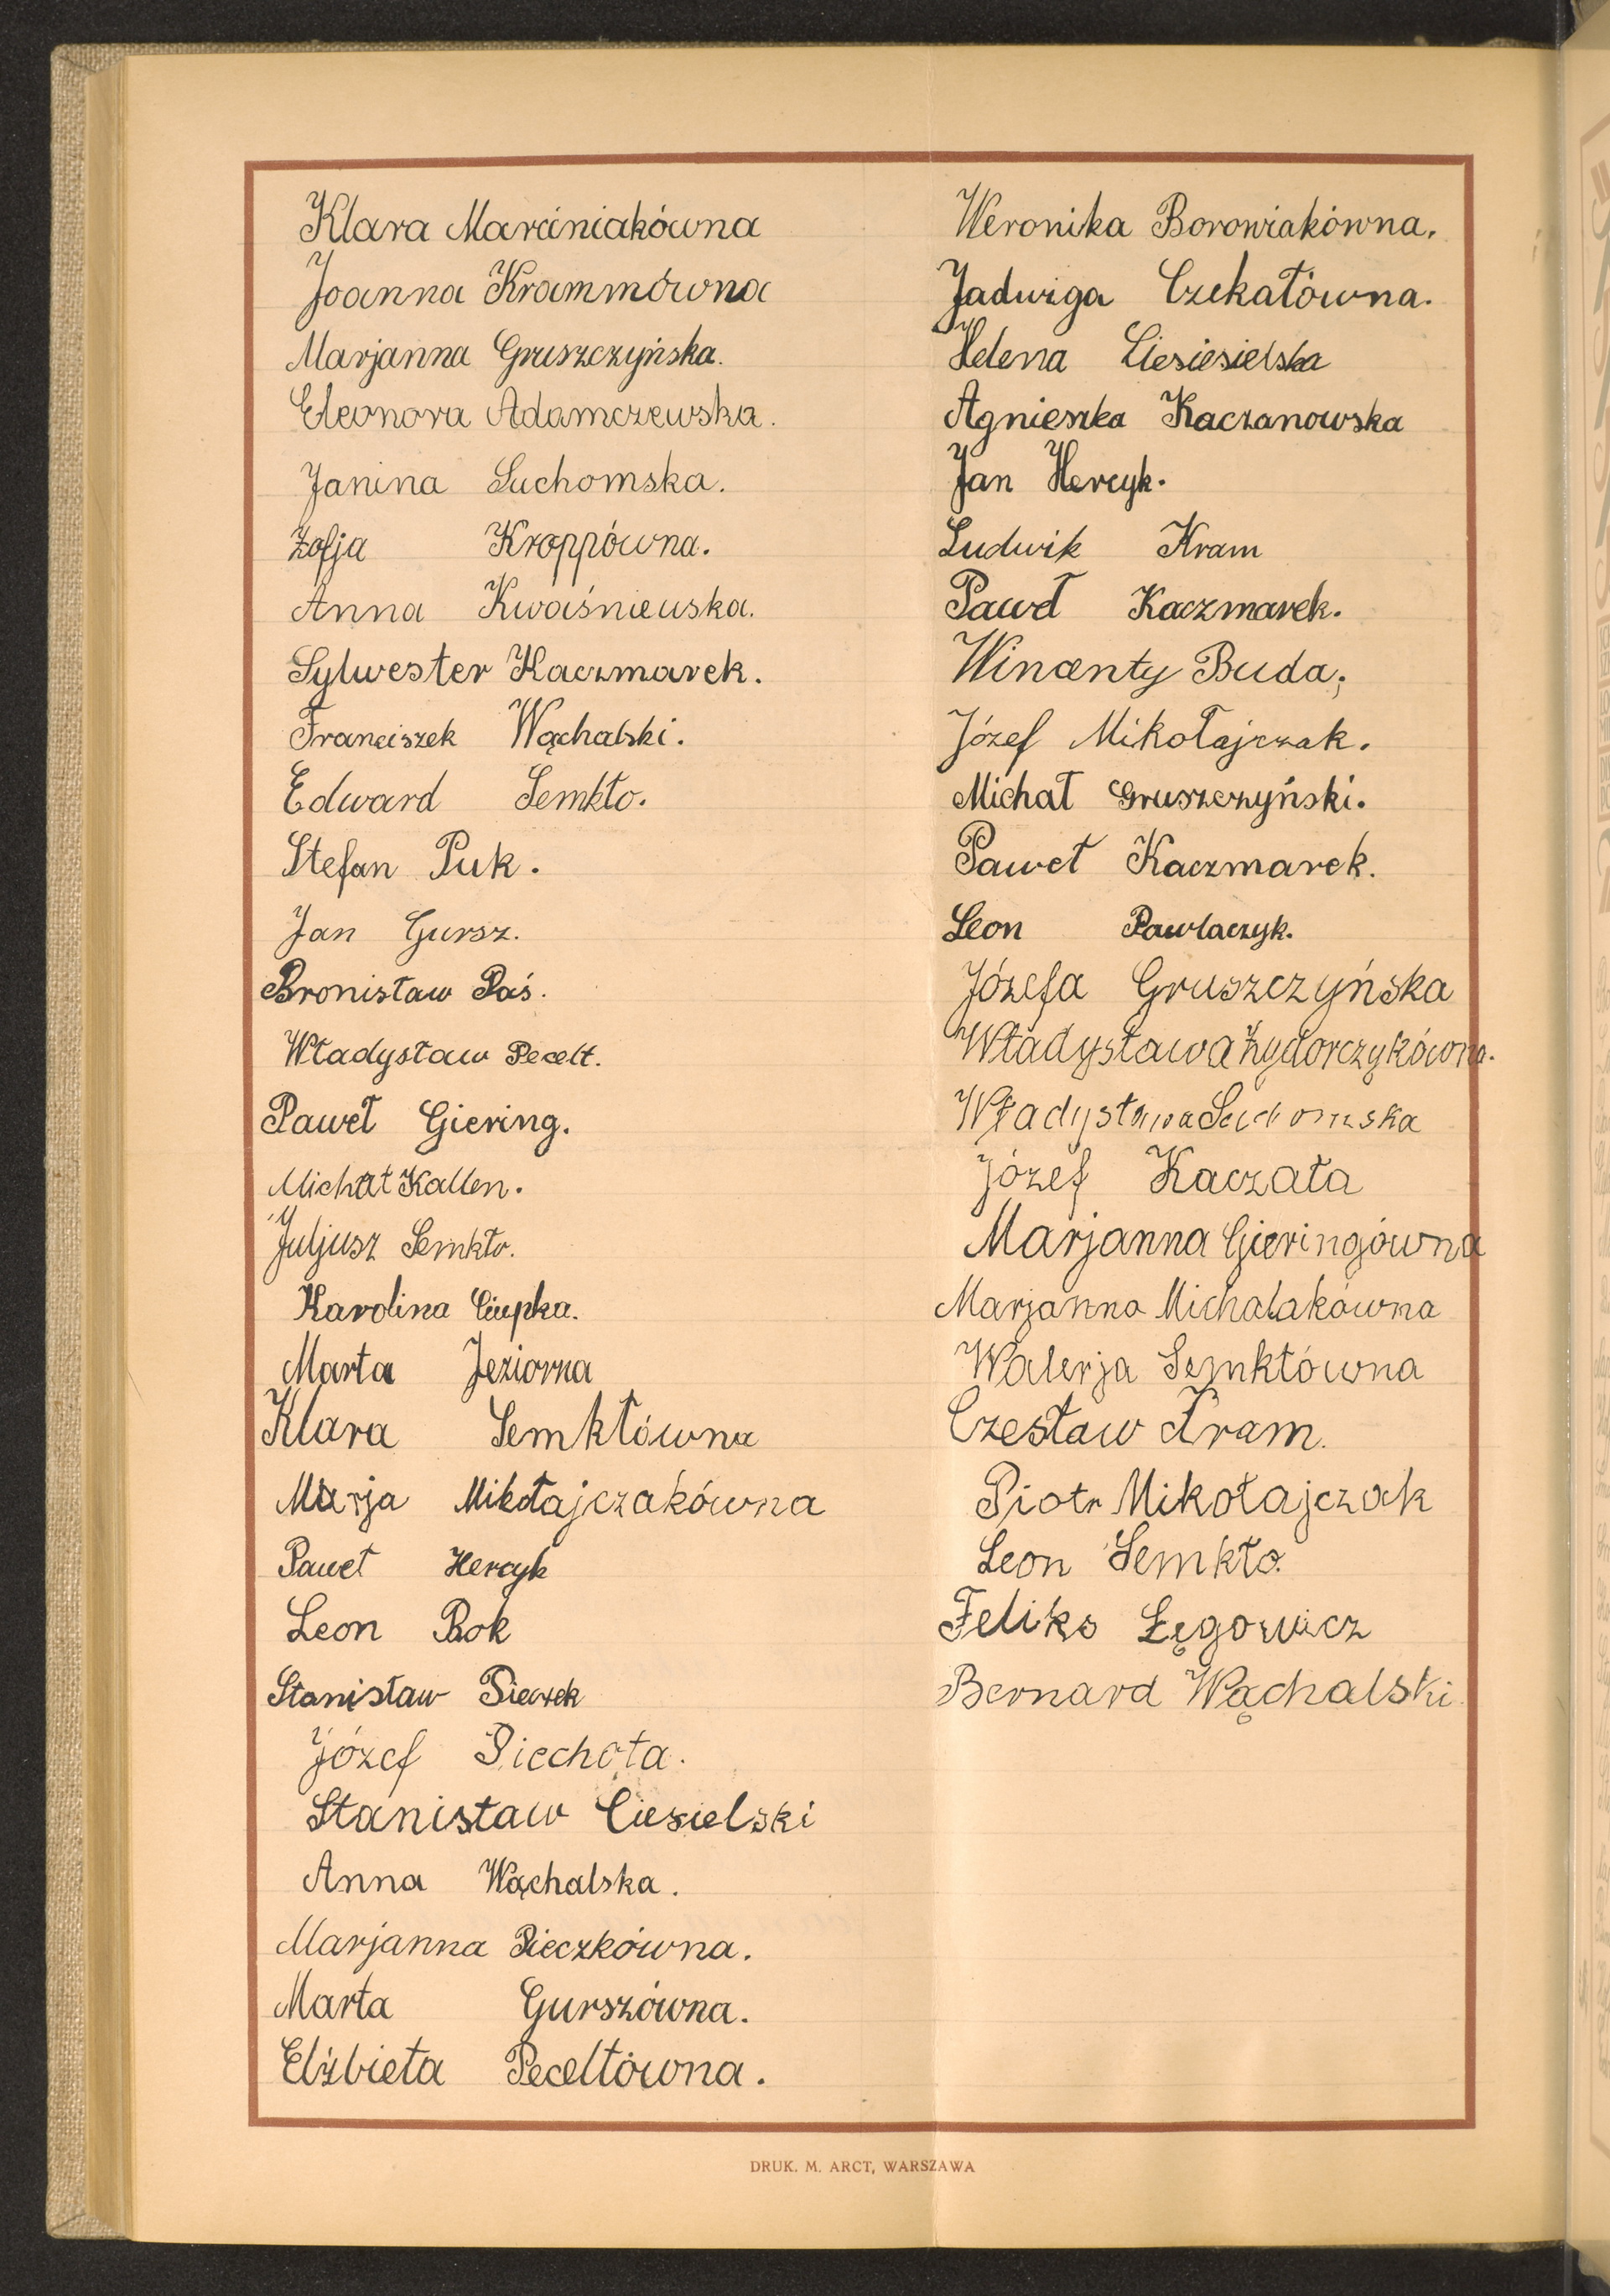 Klara Marciniakówna
Joanna Krammówna
Marjanna Gruszczyńska.
Eleonora Adamczewska.
Janina Suchomska.
Zofja Kroppówna.
Anna Kwaśniewska.
Sylwester Kaczmarek.
Franciszek Wąchalski.
Edward Semkło.
Stefan Puk.
Jan Gursz.
Bronisław Paś.
Władysław Pecelt.
Paweł Giering.
Michał Kallen.
Juljusz Semkło.
Karolina Ciupka.
Marta Jeziorna
Klara Semkłówna
Marja Mikołajczakówna
Paweł Hercyk
Leon Bok
Stanisław Siewek
Józef Piechota.
Stanisław Ciesielski
Anna Wąchalska.
Marjanna Pieczkówna.
Marta Gurszówna.
Elżbieta Peceltówna.
Weronika Borowiakówna.
Jadwiga Czekałówna.
Helena Ciesiesielska
Agnieszka Kaczanowska
Jan Hercyk.
Ludwik Kram
Pawł Kaczmarek.
Wincenty Buda.
Józef Mikołajczak.
Michał Gruszczyński.
Paweł Kaczmarek.
Leon Pawlaczyk.
Józefa Gruszczyńska
Władysława Żydorczykówna.
Władysława Suchomska
Józef Kaczała
Marjanna Gieringówna
Marjanna Michalakówna
Walerja Semkłówna
Czesław Kram.
Piotr Mikołajczak
Leon Semkło.
Feliks Łęgowicz
Bernard Wąchalski
DRUK. M. ARCT, WARSZAWA